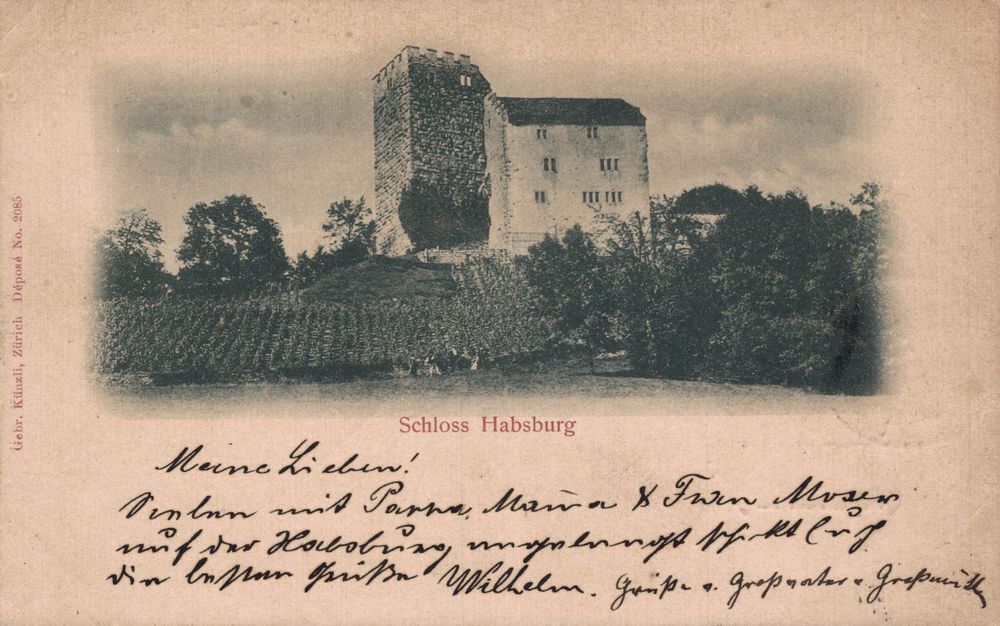 Gebr. Künzli, Zürich Déposé No. 2085
Schloss Habsburg
Meine Lieben!
Soeben mit Pappa, Mama & Frau Moser
auf der Habsburg angelangt schickt Euch
die besten Grüße Wilhelm. Grüße v. Großvater u. Großmutter